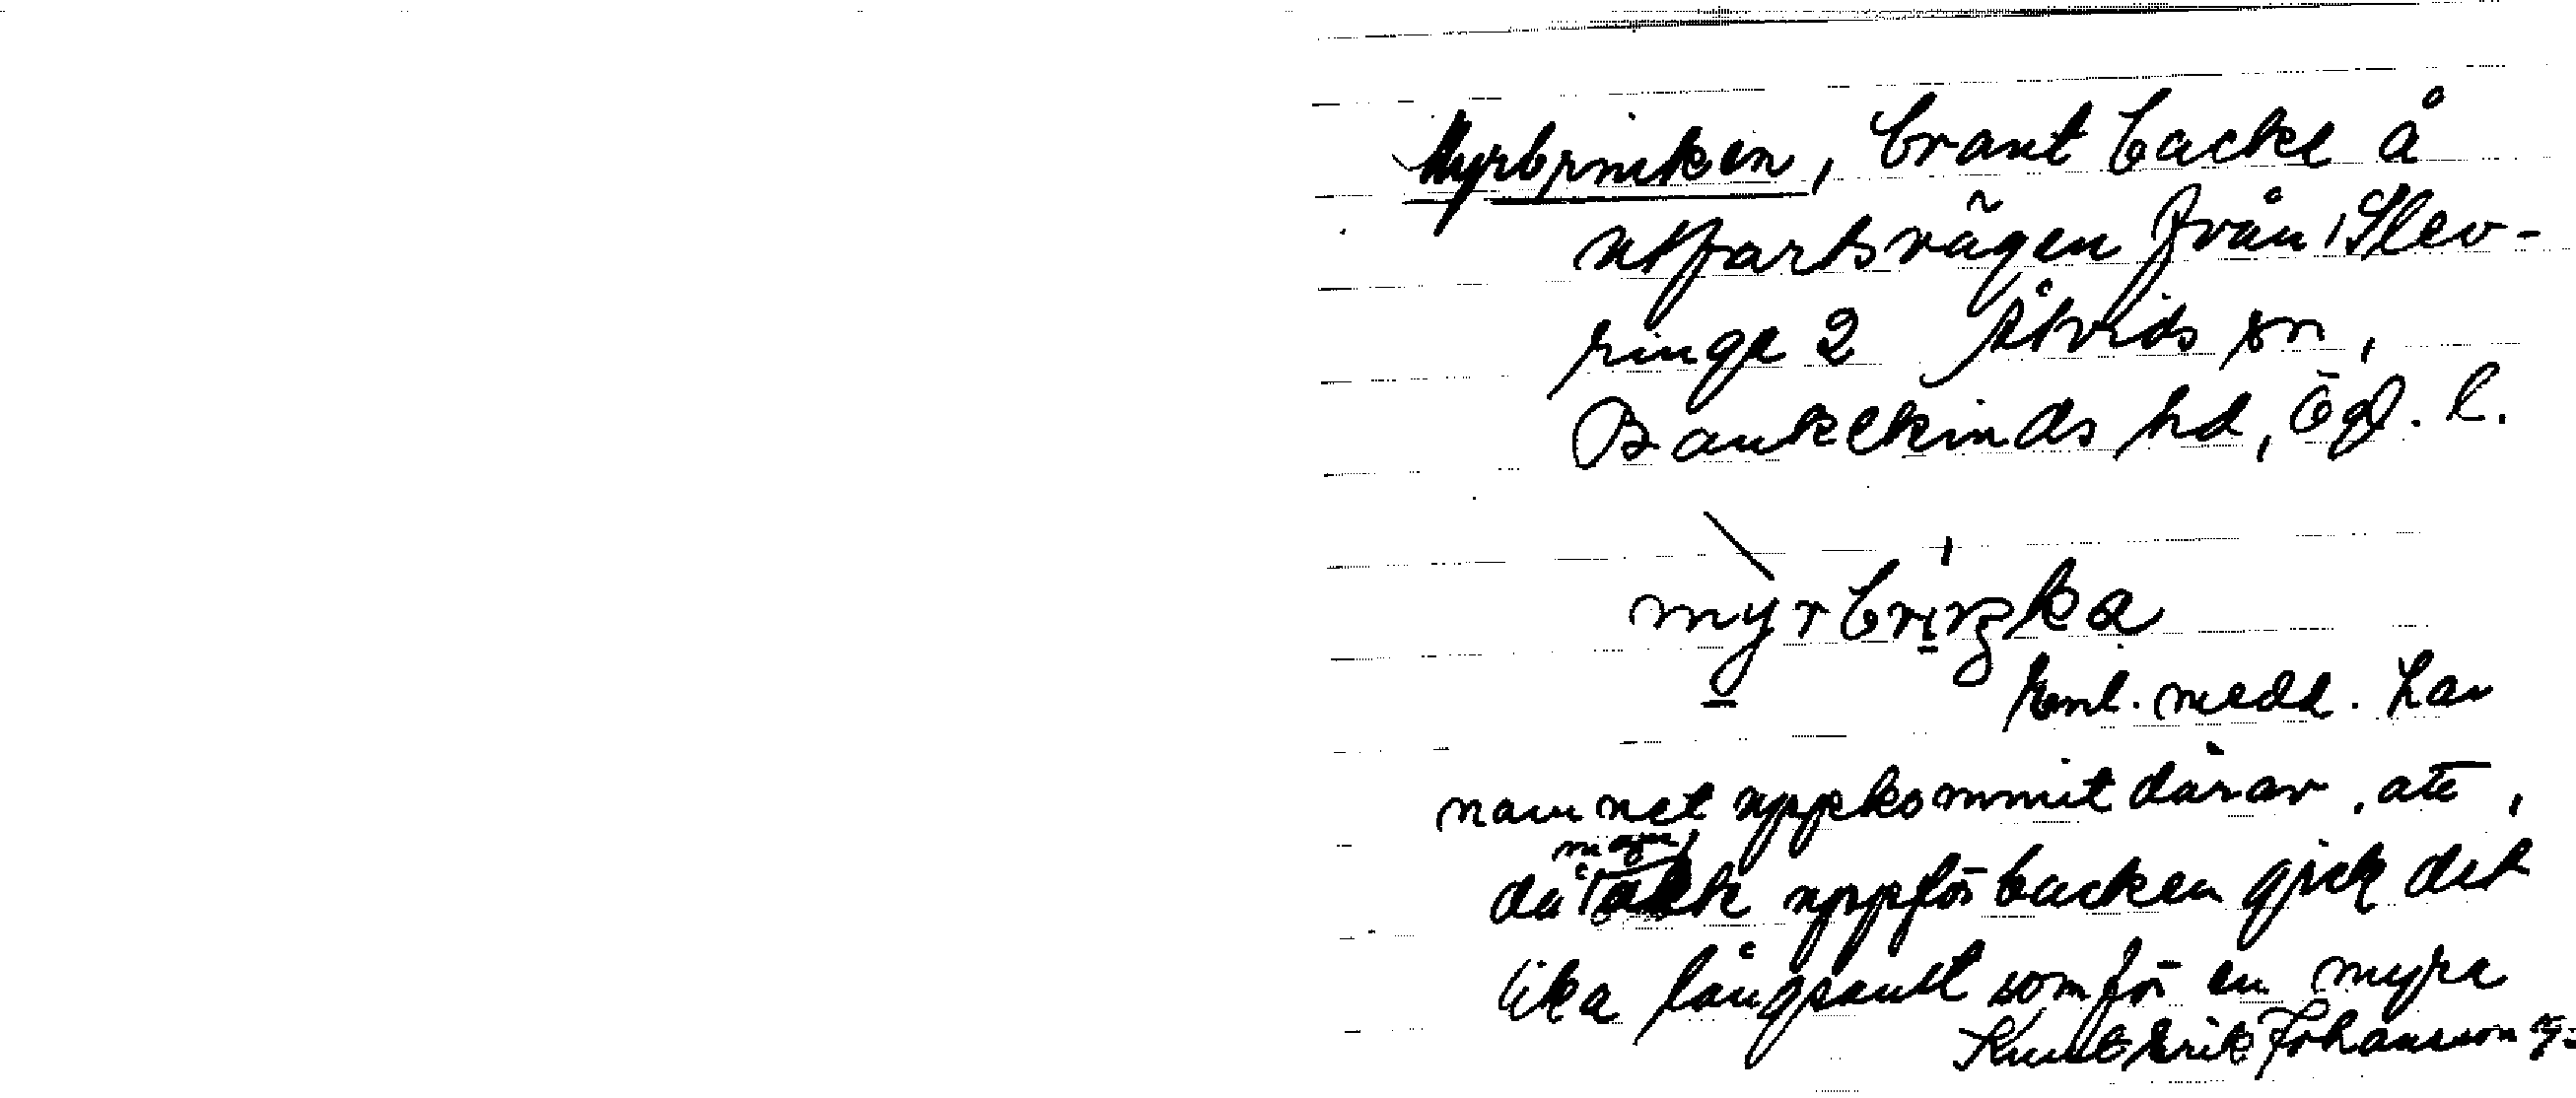 Myrbrinken, brant backe å
utfartsvägen från Slev-
ringe 2 Åtvids sn,
Bankekinds hd, Ögl. l.
myrbriŋka
Enl. medd. har
namnet uppkommit därav, att,
då man gick uppför backen gick det
lika långsamt som för en myra
Knut Erik Johansson